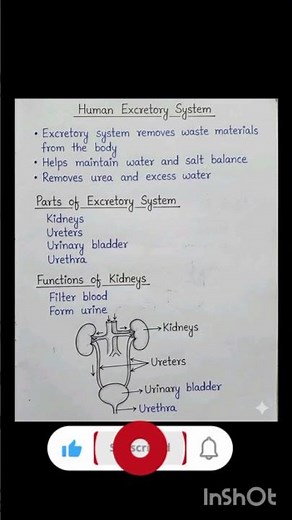 Human Excretory System
• Excretory system removes waste materials
from the body
• Helps maintain water and salt balance
• Removes urea and excess water
Parts of Excretory System
Kidneys
Ureters
Urinary bladder
Urethra
Functions of Kidneys
Filter blood
Form urine
Kidneys
Ureters
Urinary bladder
Urethra
InShOt